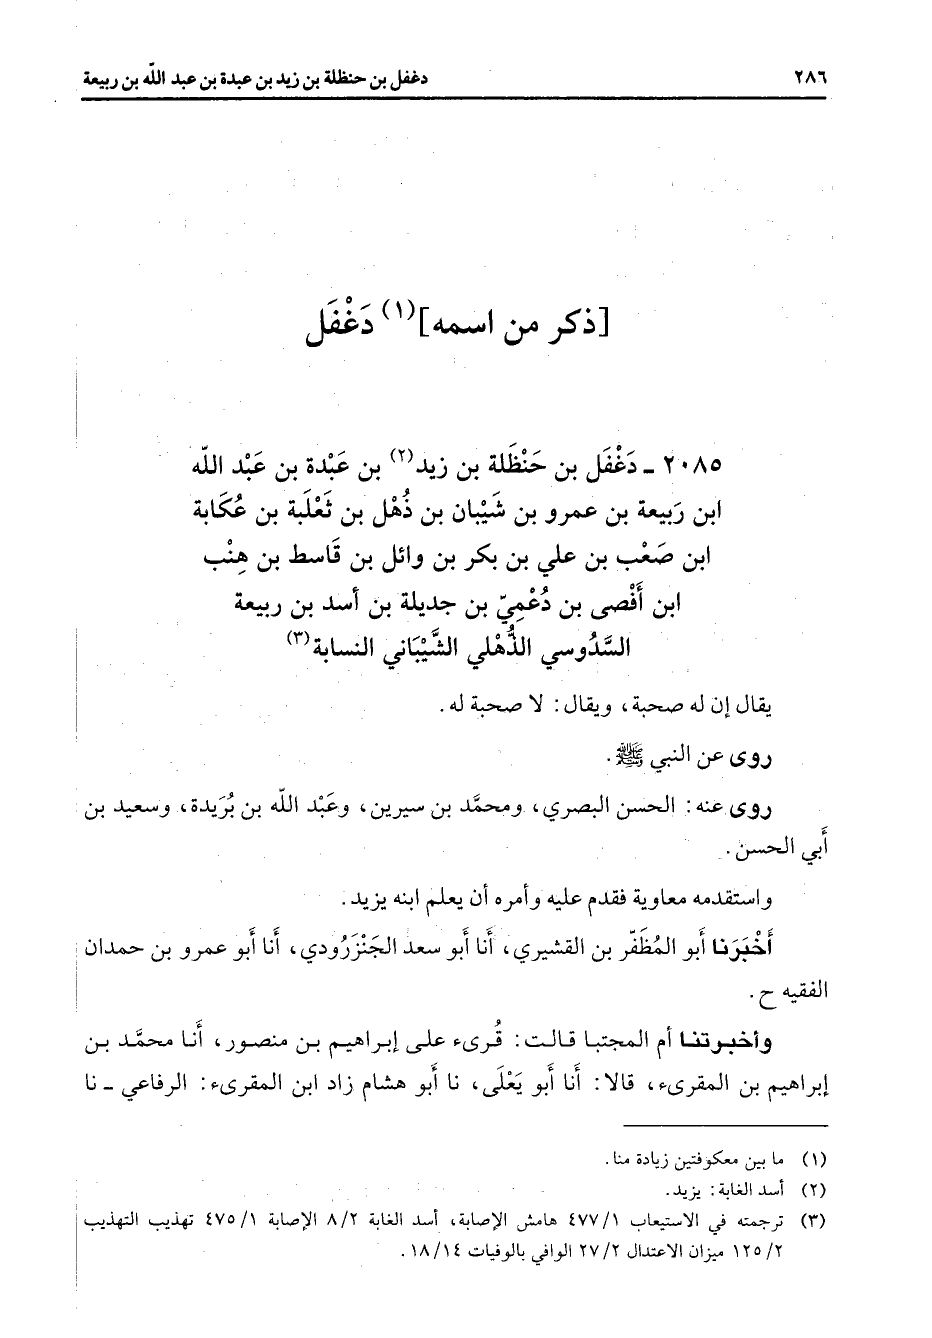 ٢٨٦ دغفل بن حنظلة بن زيد بن عبدة بن عبد الله بن ربيعة
[ذكر من اسمه](١) دَغْفَل
٢٠٨٥ ـ دَغْفَل بن حَنْظَلة بن زيد(٢) بن عَبْدة بن عَبْد الله
ابن رَبيعة بن عمرو بن شَيْبان بن ذُهْل بن ثَعْلَبة بن عُكَابة
ابن صَعْب بن علي بن بكر بن وائل بن قَاسط بن هِنْب
ابن أَفْصى بن دُعْمِيّ بن جديلة بن أسد بن ربيعة
السَّدُوسي الذُّهْلي الشَّيْبَاني النسابة(٣)
يقال إن له صحبة، ويقال: لا صحبة له.
روى عن النبي ﷺ.
روى عنه: الحسن البصري، ومحمَّد بن سيرين، وعَبْد الله بن بُرَيدة، وسعيد بن
أَبي الحسن.
واستقدمه معاوية فقدم عليه وأمره أن يعلم ابنه يزيد.
أَخْبَرَنا أَبو المُظَفّر بن القشيري، أَنا أَبو سعد الجَنْزَرُودي، أَنا أَبو عمرو بن حمدان
الفقيه ح.
وأخبرتنا أم المجتبا قالت: قُرىء على إبراهيم بن منصور، أَنا محمَّد بن
إبراهيم بن المقرىء، قالا: أَنا أَبو يَعْلَى، نا أَبو هشام زاد ابن المقرىء: الرفاعي ـ نا
(١) ما بين معكوفتين زيادة منا.
(٢) أسد الغابة: يزيد.
(٣) ترجمته في الاستيعاب ٤٧٧/١ هامش الإصابة، أسد الغابة ٨/٢ الإصابة ٤٧٥/١ تهذيب التهذيب
١٢٥/٢ ميزان الاعتدال ٢٧/٢ الوافي بالوفيات ١٨/١٤.